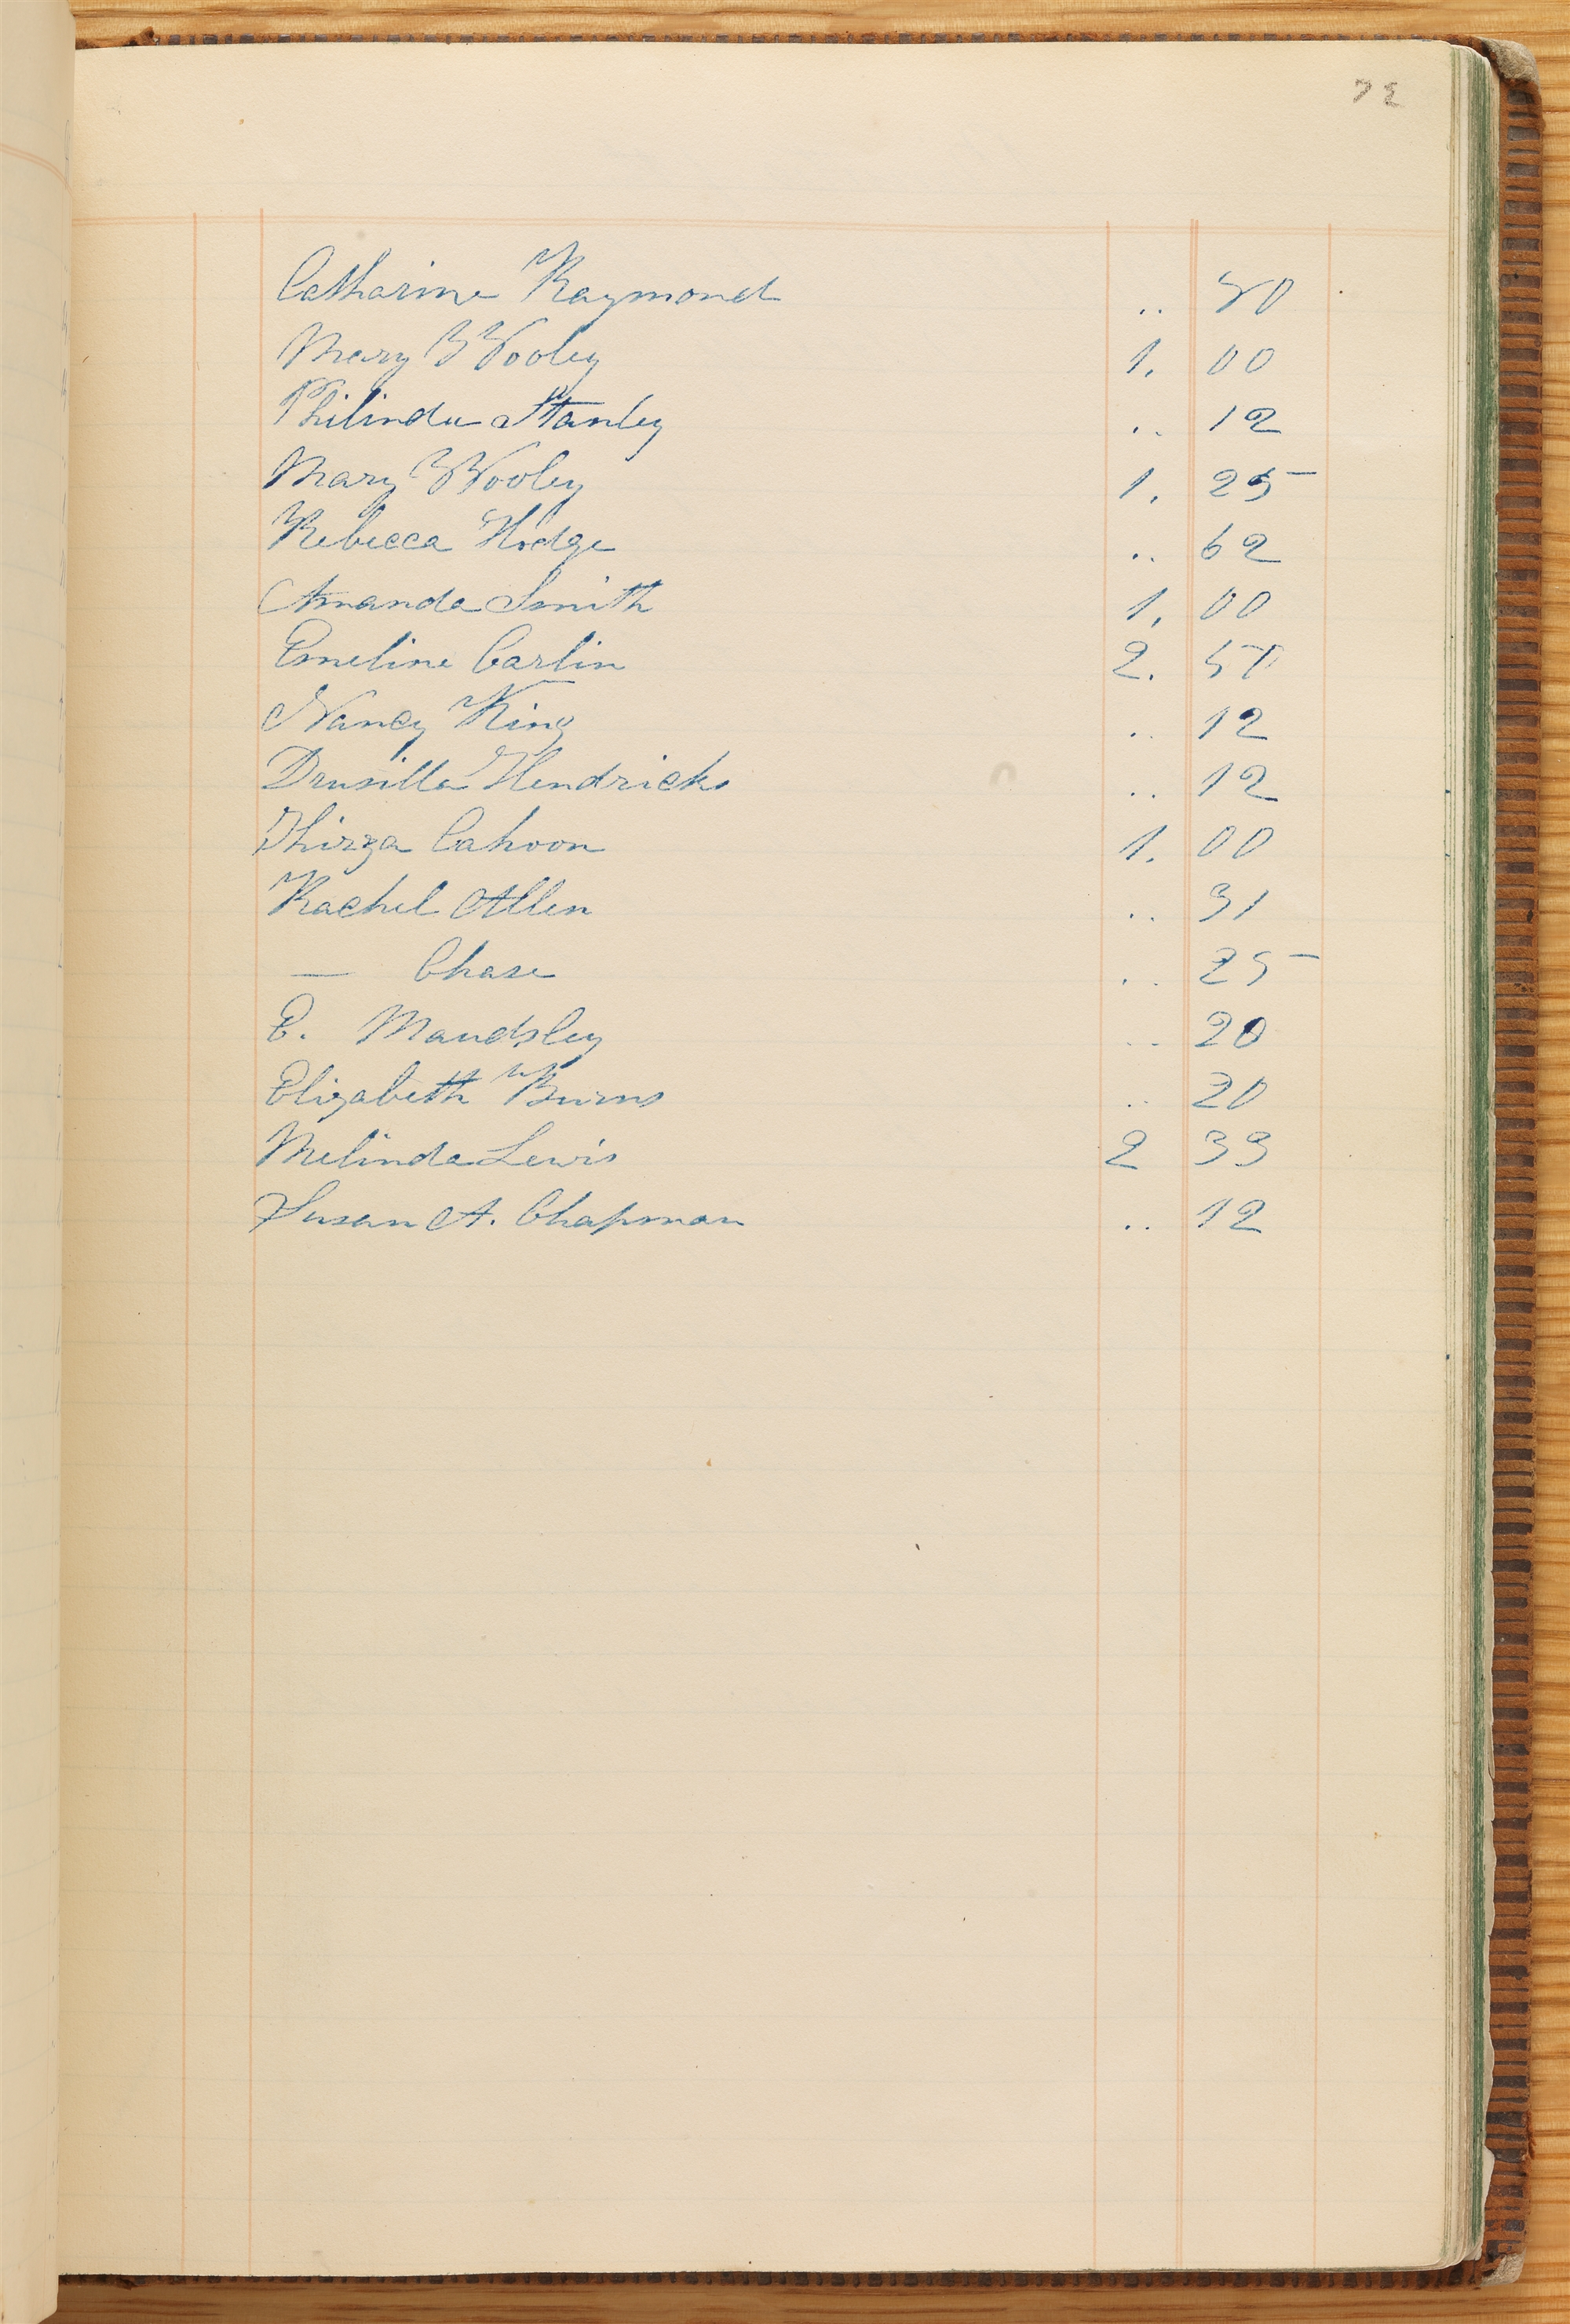 Catharine Raymond .. 50
Mary Wooley 1. 00
Philinda Stanley .. 12
Mary Wooley 1. 25
Rebecca Hodge .. 62
Amanda Smith 1. 00
Emeline Carlin 2. 50
Nancy King .. 12
Drusilla Hendricks .. 12
Thirza Cahoon 1. 00
Rachel Allen .. 31
— Chase .. 25
E. Maudsley .. 20
Elizabeth Burns .. 20
Melinda Lewis 2 33
Susan A. Chapman .. 12